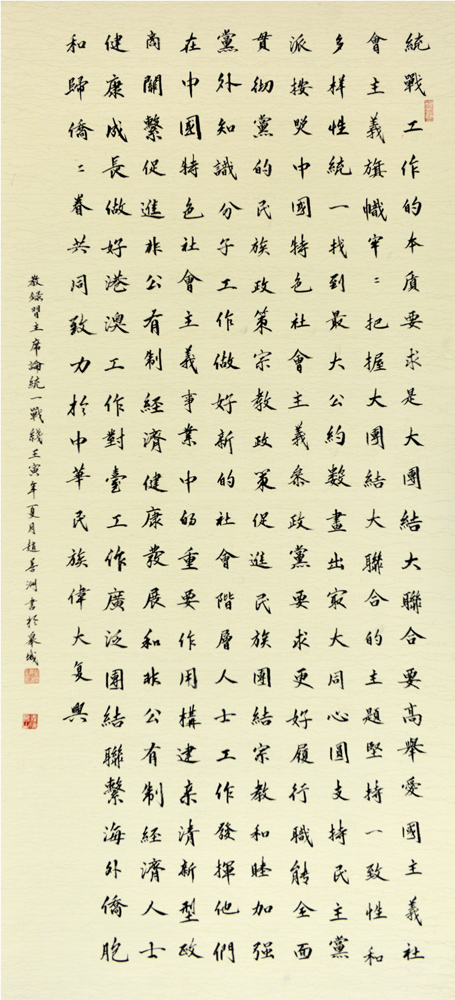 統戰工作的本质要求是大團結大聯合要高舉愛國主義社
會主義旗幟牢〻把握大團結大聯合的主題堅持一致性和
多样性統一找到最大公約數畫出最大同心圓支持民主黨
派按照中國特色社會主義參政黨要求更好履行職能全面
贯彻黨的民族政策宗教政策促進民族團結宗教和睦加强
黨外知識分子工作做好新的社會階層人士工作發揮他們
在中國特色社會主義事業中的重要作用構建亲清新型政
商關繫促進非公有制經濟健康發展和非公有制經濟人士
健康成長做好港澳工作對臺工作廣泛團結聯繫海外僑胞
和歸僑〻眷共同致力於中華民族偉大复興
敬錄習主席論統一戰綫壬寅年夏月趙善洲書於皋城